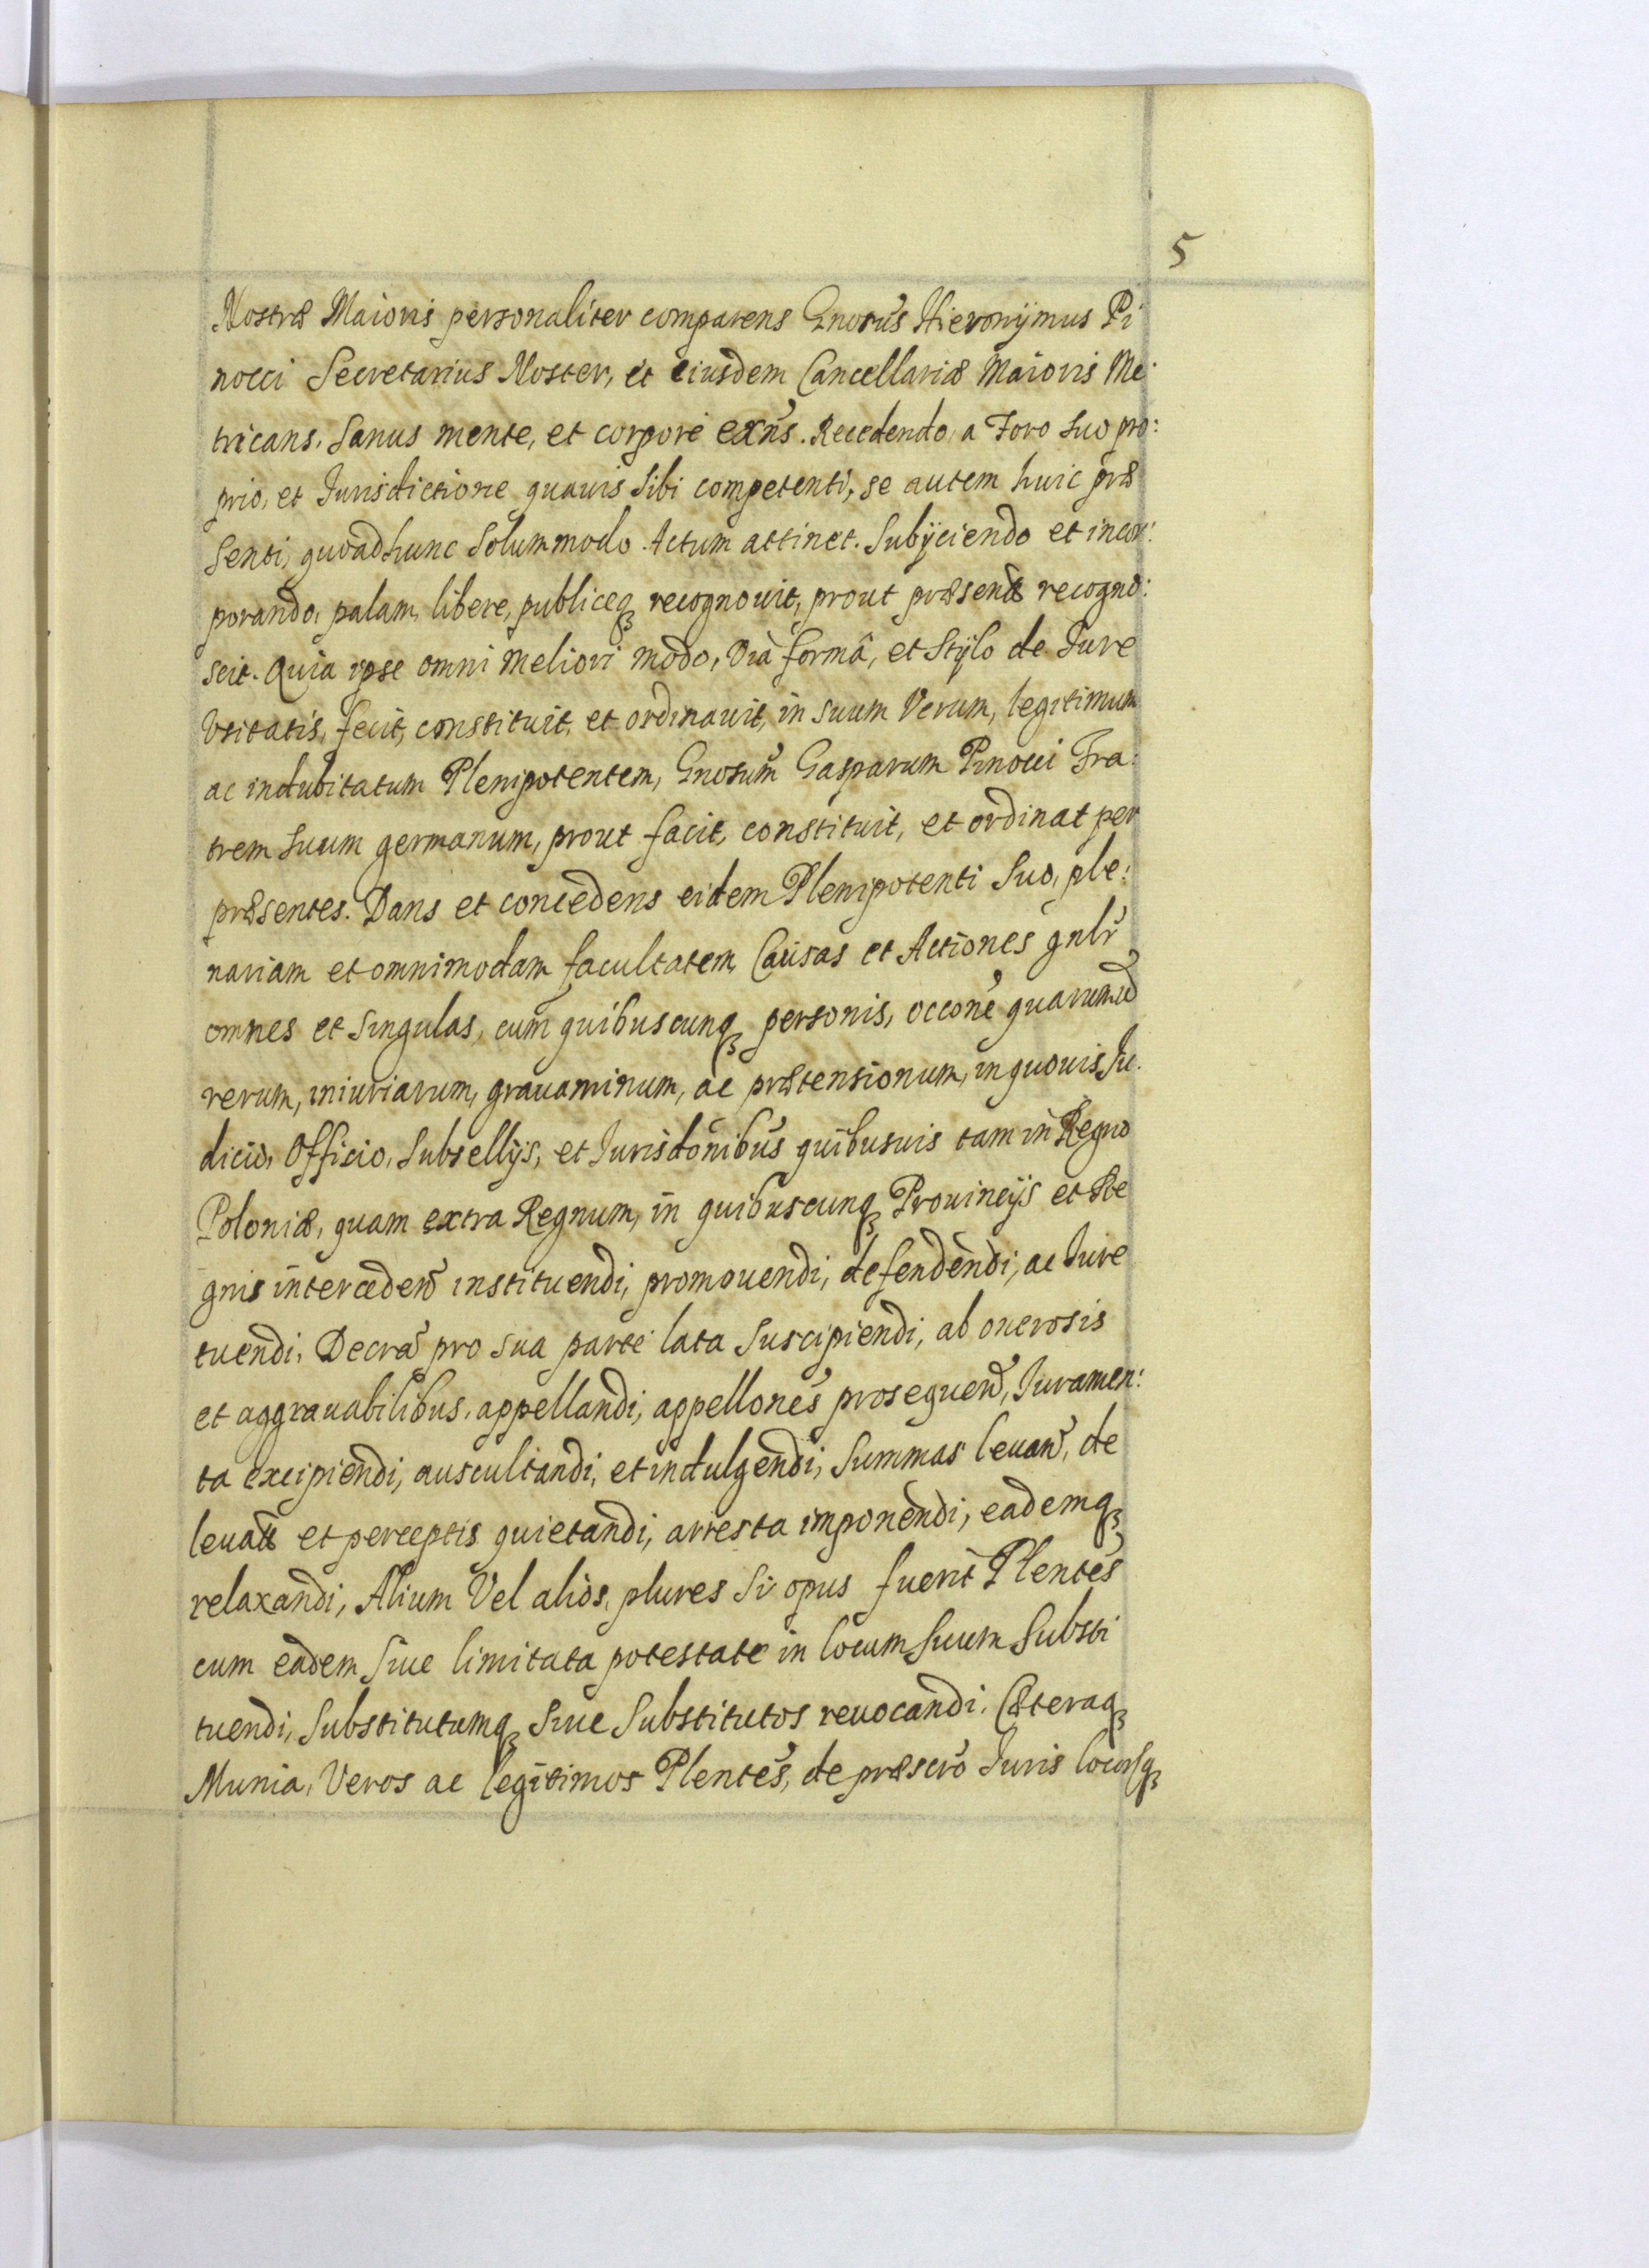 5
Nostræ Maioris personaliter comparens Gnosus Hieronÿmus Pi
nocci Secretarius Noster, et eiusdem Cancellariæ Maioris Me:
tricans, Sanus mente, et corpore exñs. Recedendo, a Foro suo pro:
prio, et Jurisdictione quauis Sibi competenti, se autem huic præ
senti, quoad hunc Solummodo Actum attinet. Subÿciendo et incor:
porando, palam, libere, publiceq3 recognouit, prout præsent recogno:
scit. Quia ipse omni meliori modo, Via formâ, et Stÿlo de Jure
Vsitatis, fecit, constituit, et ordinauit, in suum Verum, legitimum
ac indubitatum Plenipotentem, Gnosum Gasparum Pinocci Fra:
trem suum germanum, prout facit, constituit, et ordinat per
præsentes. Dans et concedens eidem Plenipotenti Suo, ple:
nariam et omnimodam facultatem, Causas et Actiones gnlr
omnes et Singulas, cum quibuscunq3 personis, occone quarumcū
rerum, iniuriarum, grauaminum, ac prætensionum, in quouis Ju:
dicio, Officio, Subsellÿs, et Jurisdonibus quibusuis tam in Regno
Poloniæ, quam extra Regnum, in quibuscunq3 Prouincÿs et Re
gnis intercedeñ instituendi, promouendi, defendendi, ac Jure
tuendi, Decra pro sua parte lata Suscipiendi, ab onerosis
et aggrauabilibus, appellandi, appellones prosequeñ, Juramen:
ta excipiendi, auscultandi, et indulgendi, Summas leuañ, de
leuatis et perceptis quietandi, arresta imponendi, eademq3
relaxandi, Alium Vel alios, plures Si opus fuerit Plentes
cum eadem Siue limitata potestate in locum Suum Substi
tuendi, Substitutumq3 Siue Substitutos reuocandi. Cæteraq3
Munia, Veros ac legitimos Plentes, de præscro Juris locorsq3